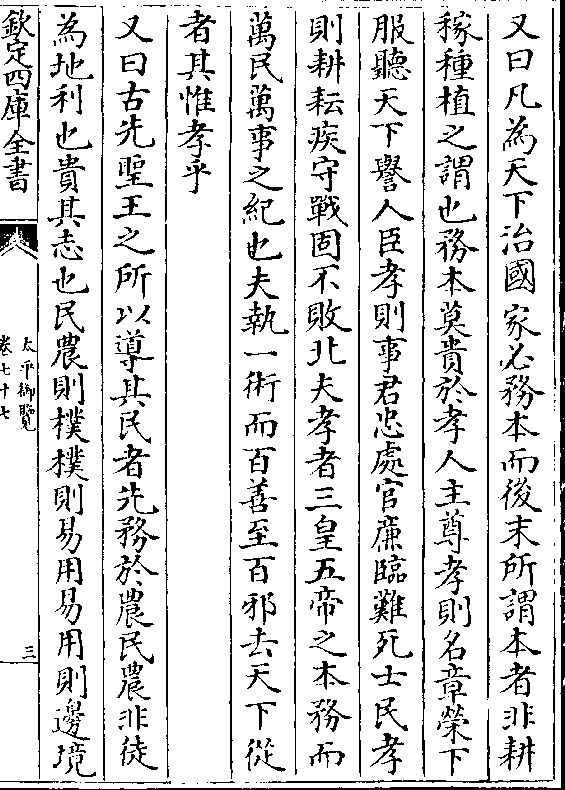 又曰凡為天下治國家必務本而後末所謂本者非耕
稼種植之謂也務本莫貴於孝人主尊孝則名章榮下
服聽天下譽人臣孝則事君忠處官廉臨難死士民孝
則耕耘疾守戰固不敗北夫孝者三皇五帝之本務而
萬民萬事之紀也夫執一術而百善至百邪去天下從
者其惟孝乎
又曰古先聖王之所以導其民者先務於農民農非徒
為地利也貴其志也民農則樸樸則易用易用則邊境
欽定四庫全書
太平御覽
卷七十七
三